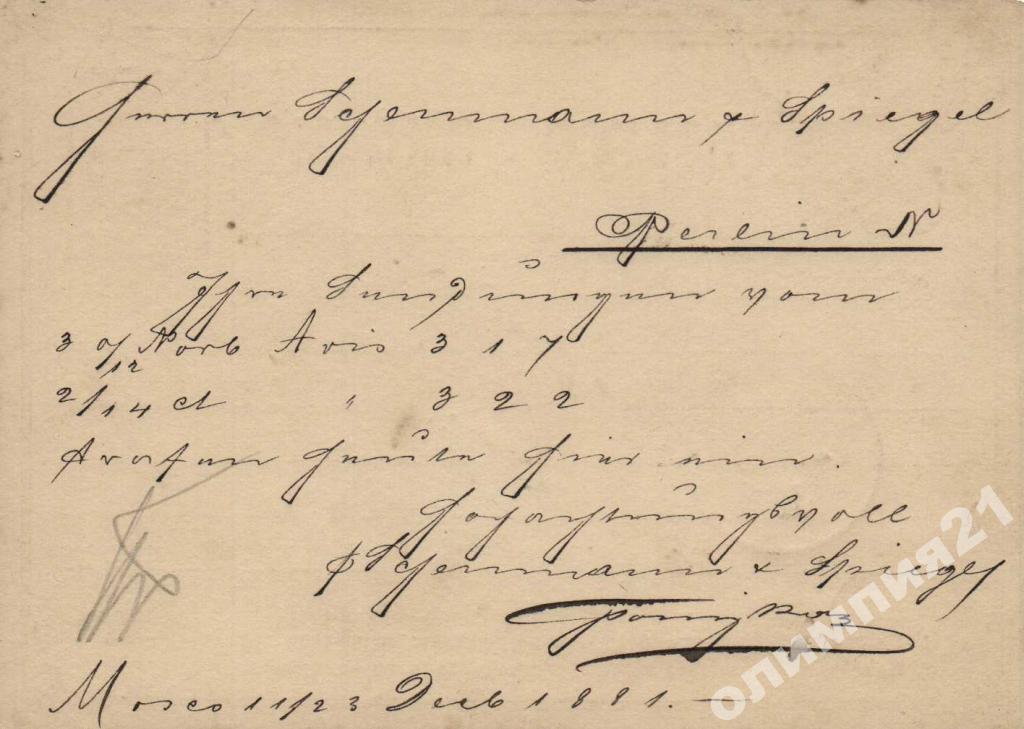 Herren Schenmann & Spiegel
Berlin N
Ihre Sendungen vom
3 0/12 Novb Avis 3 1 7
2/14 ct " 3 2 2
trafen heute hier ein.
Hochachtungsvoll
p Schenmann & Spiegel
Mosco 11/23 Decb 1881.
олимпия21